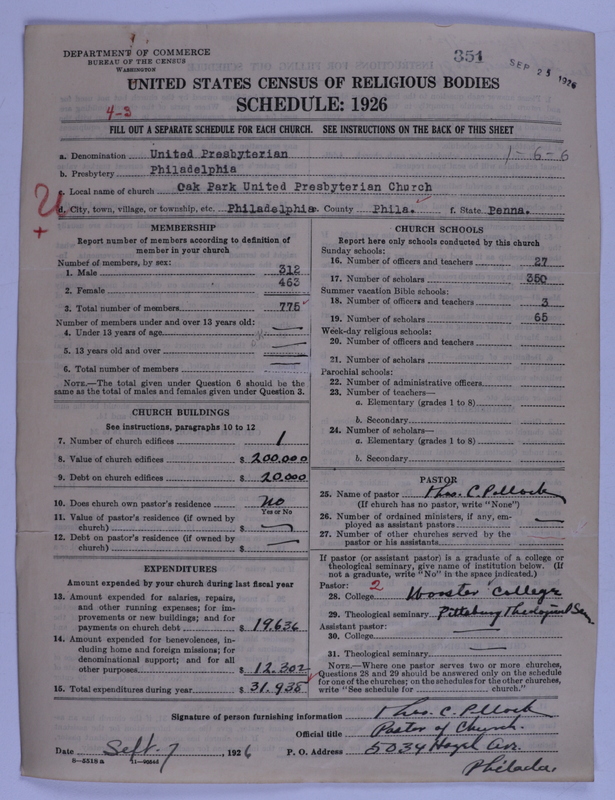 DEPARTMENT OF COMMERCE
BUREAU OF THE CENSUS
WASHINGTON
351
SEP 25 1926
UNITED STATES CENSUS OF RELIGIOUS BODIES
SCHEDULE: 1926
4-3
FILL OUT A SEPARATE SCHEDULE FOR EACH CHURCH. SEE INSTRUCTIONS ON THE BACK OF THIS SHEET
a. Denomination United Presbyterian 1-6-6
b. Presbytery Philadelphia
c. Local name of church Oak Park United Presbyterian Church
d. City, town, village, or township, etc. Philadelphia e. County Phila. f. State Penna.
MEMBERSHIP
Report number of members according to definition of
member in your church
Number of members, by sex:
1. Male 312
2. Female 463
3. Total number of members 775
Number of members under and over 13 years old:
4. Under 13 years of age —
5. 13 years old and over —
6. Total number of members —
NOTE.—The total given under Question 6 should be the
same as the total of males and females given under Question 3.
CHURCH BUILDINGS
See instructions, paragraphs 10 to 12
7. Number of church edifices 1
8. Value of church edifices $ 200,000
9. Debt on church edifices $ 20,000
10. Does church own pastor's residence No
Yes or No
11. Value of pastor's residence (if owned by
church) $ —
12. Debt on pastor's residence (if owned by
church) $ —
EXPENDITURES
Amount expended by your church during last fiscal year
13. Amount expended for salaries, repairs,
and other running expenses; for im-
provements or new buildings; and for
payments on church debt $ 19,636
14. Amount expended for benevolences, in-
cluding home and foreign missions; for
denominational support; and for all
other purposes $ 12,302
15. Total expenditures during year $ 31,935
CHURCH SCHOOLS
Report here only schools conducted by this church
Sunday schools:
16. Number of officers and teachers 27
17. Number of scholars 350
Summer vacation Bible schools:
18. Number of officers and teachers 3
19. Number of scholars 65
Week-day religious schools:
20. Number of officers and teachers
21. Number of scholars
Parochial schools:
22. Number of administrative officers
23. Number of teachers—
a. Elementary (grades 1 to 8)
b. Secondary
24. Number of scholars—
a. Elementary (grades 1 to 8)
b. Secondary
PASTOR
25. Name of pastor Thos. C. Pollock
(If church has no pastor, write "None")
26. Number of ordained ministers, if any, em-
ployed as assistant pastors —
27. Number of other churches served by the
pastor or his assistants —
If pastor (or assistant pastor) is a graduate of a college or
theological seminary, give name of institution below. (If
not a graduate, write "No" in the space indicated.)
Pastor: 2
28. College Wooster College
29. Theological seminary Pittsburg Theological Sem.
Assistant pastor:
30. College —
31. Theological seminary —
NOTE.—Where one pastor serves two or more churches,
Questions 28 and 29 should be answered only on the schedule
for one of the churches; on the schedules for the other churches,
write "See schedule for church."
Signature of person furnishing information Thos. C. Pollock
Official title Pastor of Church.
Date Sept. 7, 1926 P. O. Address 5034 Hazel Ave.
8—5518 a
Philada.